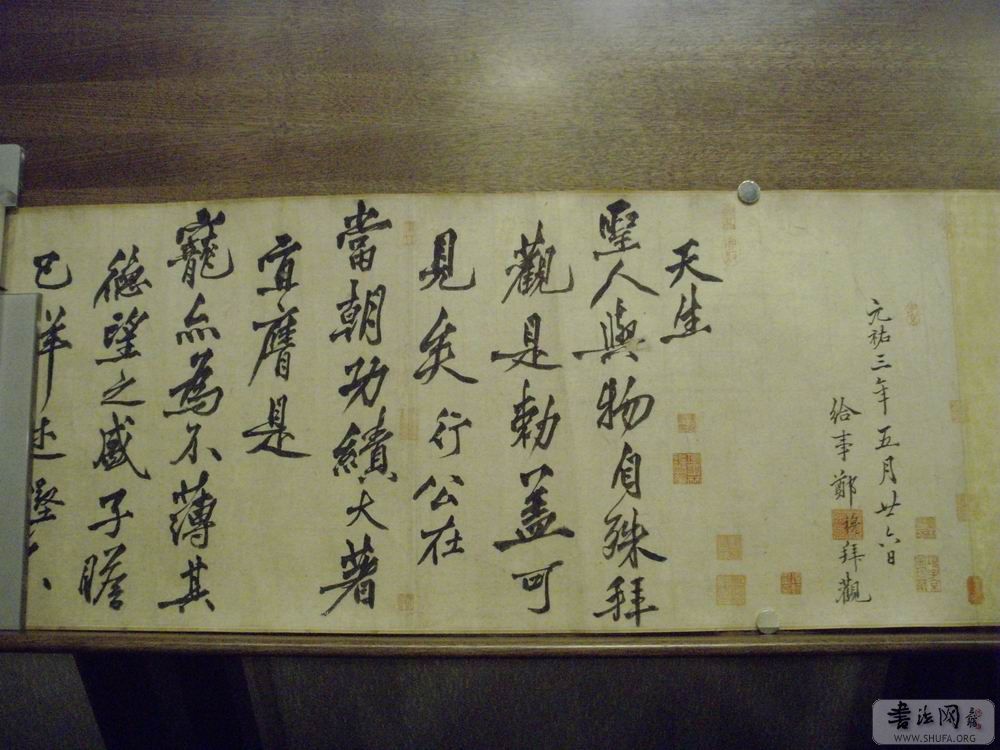 元祐三年五月廿六日
給事鄭穆拜觀
天生
聖人與物自殊拜
觀是勅蓋可
見矣行公在
當朝功績大著
宜膺是
寵亦為不薄其
德望之盛子瞻
已詳述
書法网
WWW.SHUFA.ORG